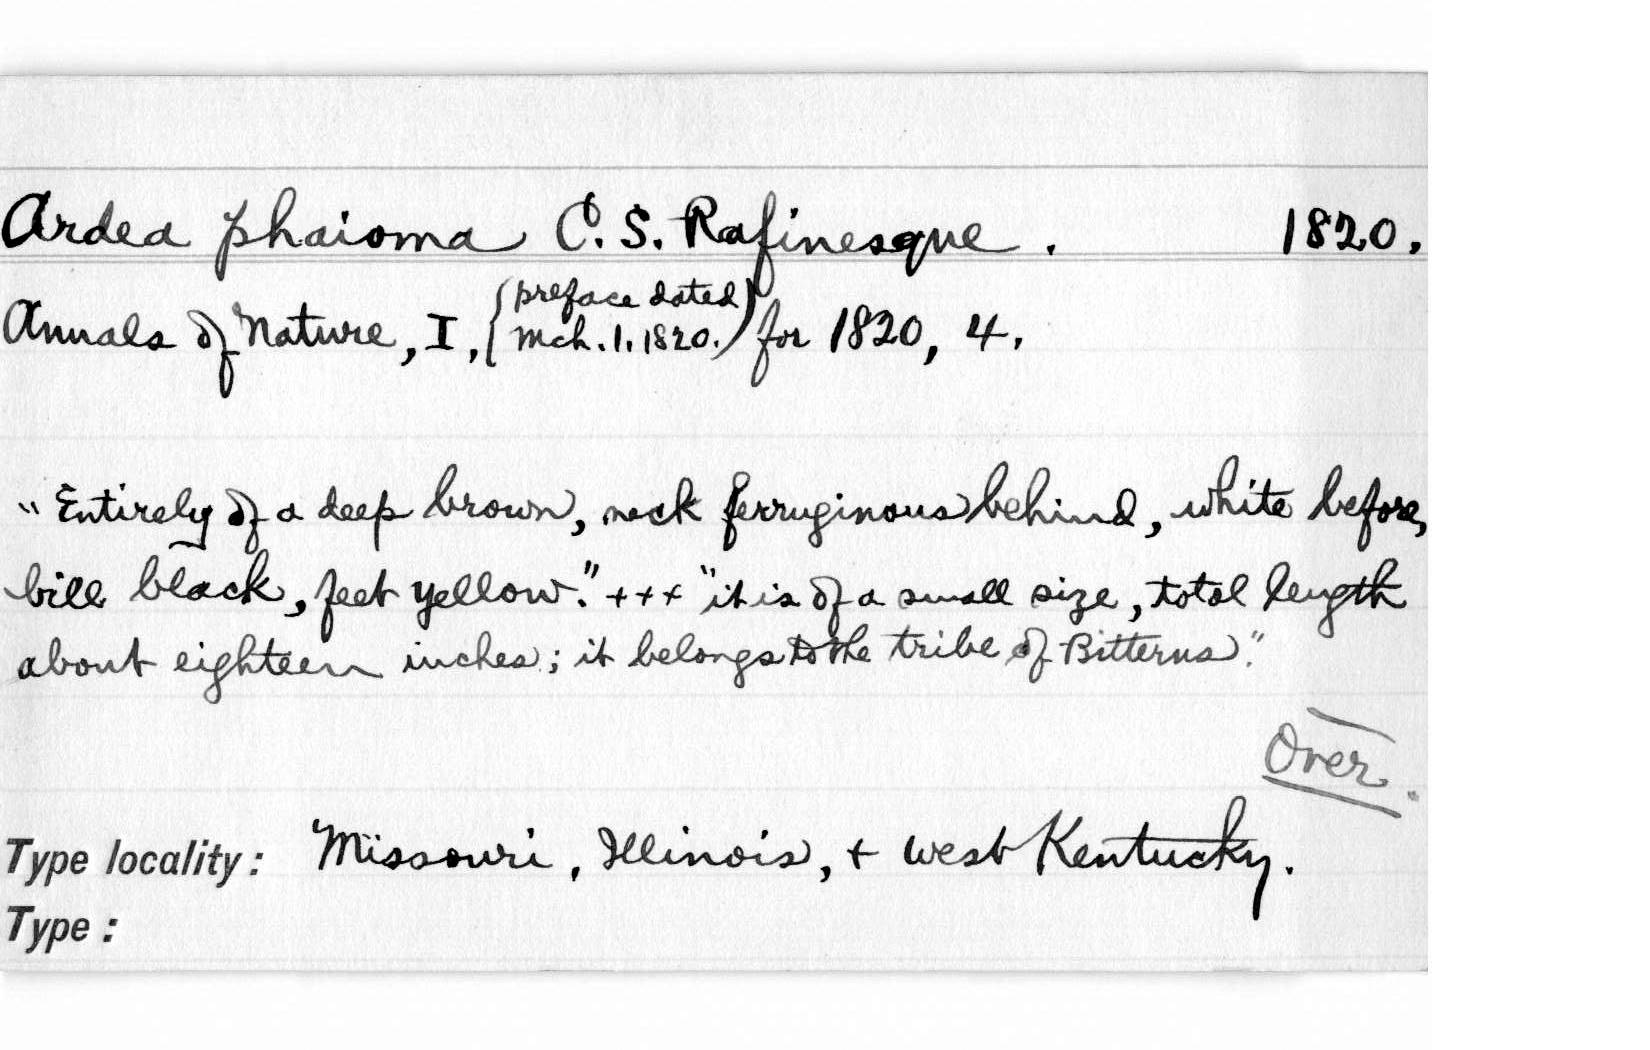 Ardea phaioma C. S. Rafinesque. 1820.
Annals of Nature, I, (preface dated
Mch. 1, 1820.) for 1820, 4.
"Entirely of a deep brown, neck ferruginous behind, white before,
bill black, feet yellow." +++ "it is of a small size, total length
about eighteen inches; it belongs to the tribe of Bitterns."
Over.
Type locality: Missouri, Illinois, + west Kentucky.
Type: